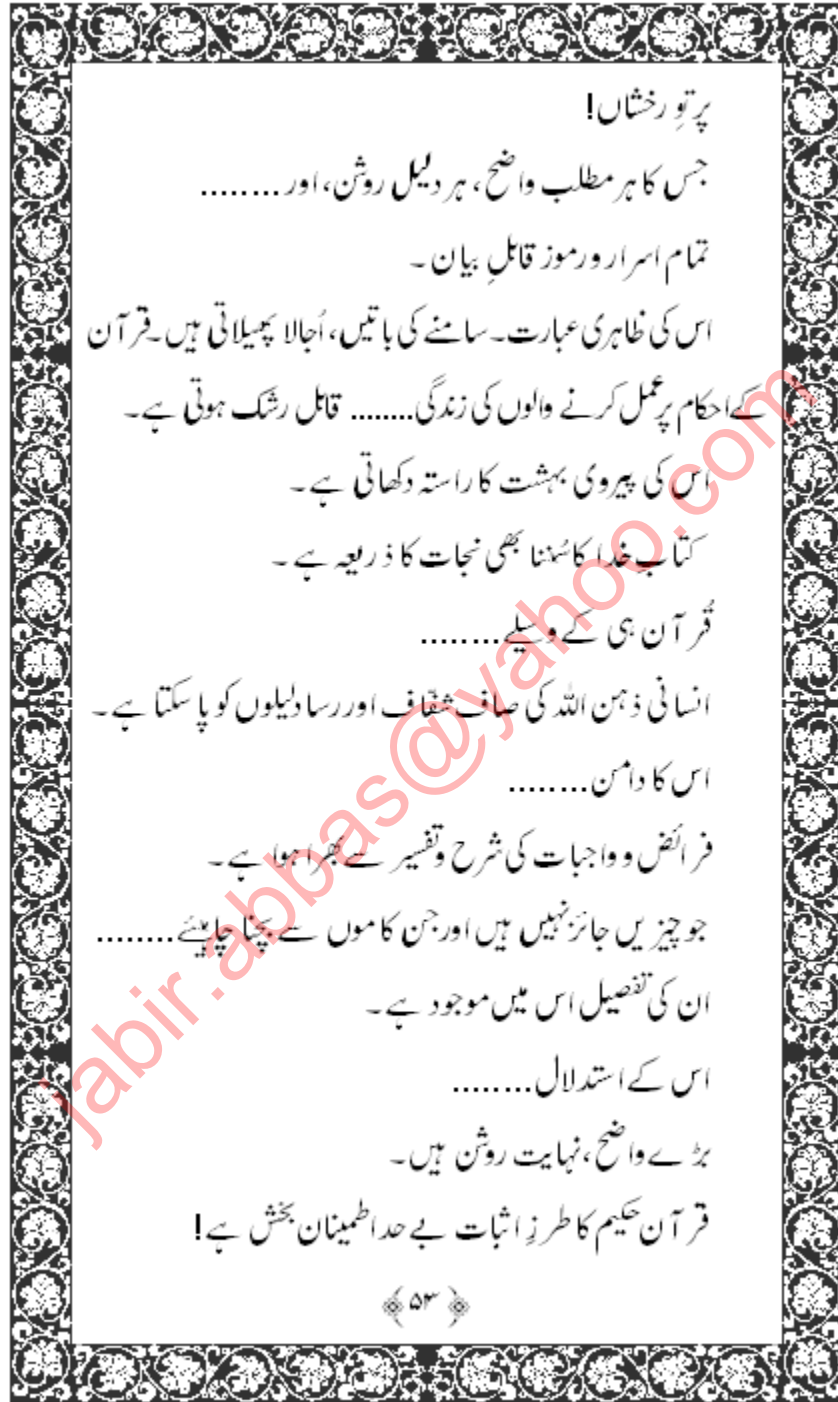 پرتوِ رخشاں!
جس کا ہر مطلب واضح، ہر دلیل روشن، اور ........
تمام اسرار ورموز قابلِ بیان۔
اس کی ظاہری عبارت۔ سامنے کی باتیں، اُجالا پھیلاتی ہیں۔ قرآن
کے احکام پر عمل کرنے والوں کی زندگی ........ قابل رشک ہوتی ہے۔
اس کی پیروی بہشت کا راستہ دکھاتی ہے۔
کتابِ خدا کا سُننا بھی نجات کا ذریعہ ہے۔
قُرآن ہی کے وسیلے ........
انسانی ذہن اللہ کی صاف شفّاف اور رسا دلیلوں کو پا سکتا ہے۔
اس کا دامن ........
فرائض و واجبات کی شرح وتفسیر سے بھرا ہوا ہے۔
جو چیزیں جائز نہیں ہیں اور جن کاموں سے بچنا چاہیئے ........
ان کی تفصیل اس میں موجود ہے۔
اس کے استدلال ........
بڑے واضح، نہایت روشن ہیں۔
قرآن حکیم کا طرزِ اثبات بے حد اطمینان بخش ہے!
﴿۵۳﴾
jabir.abbas@yahoo.com